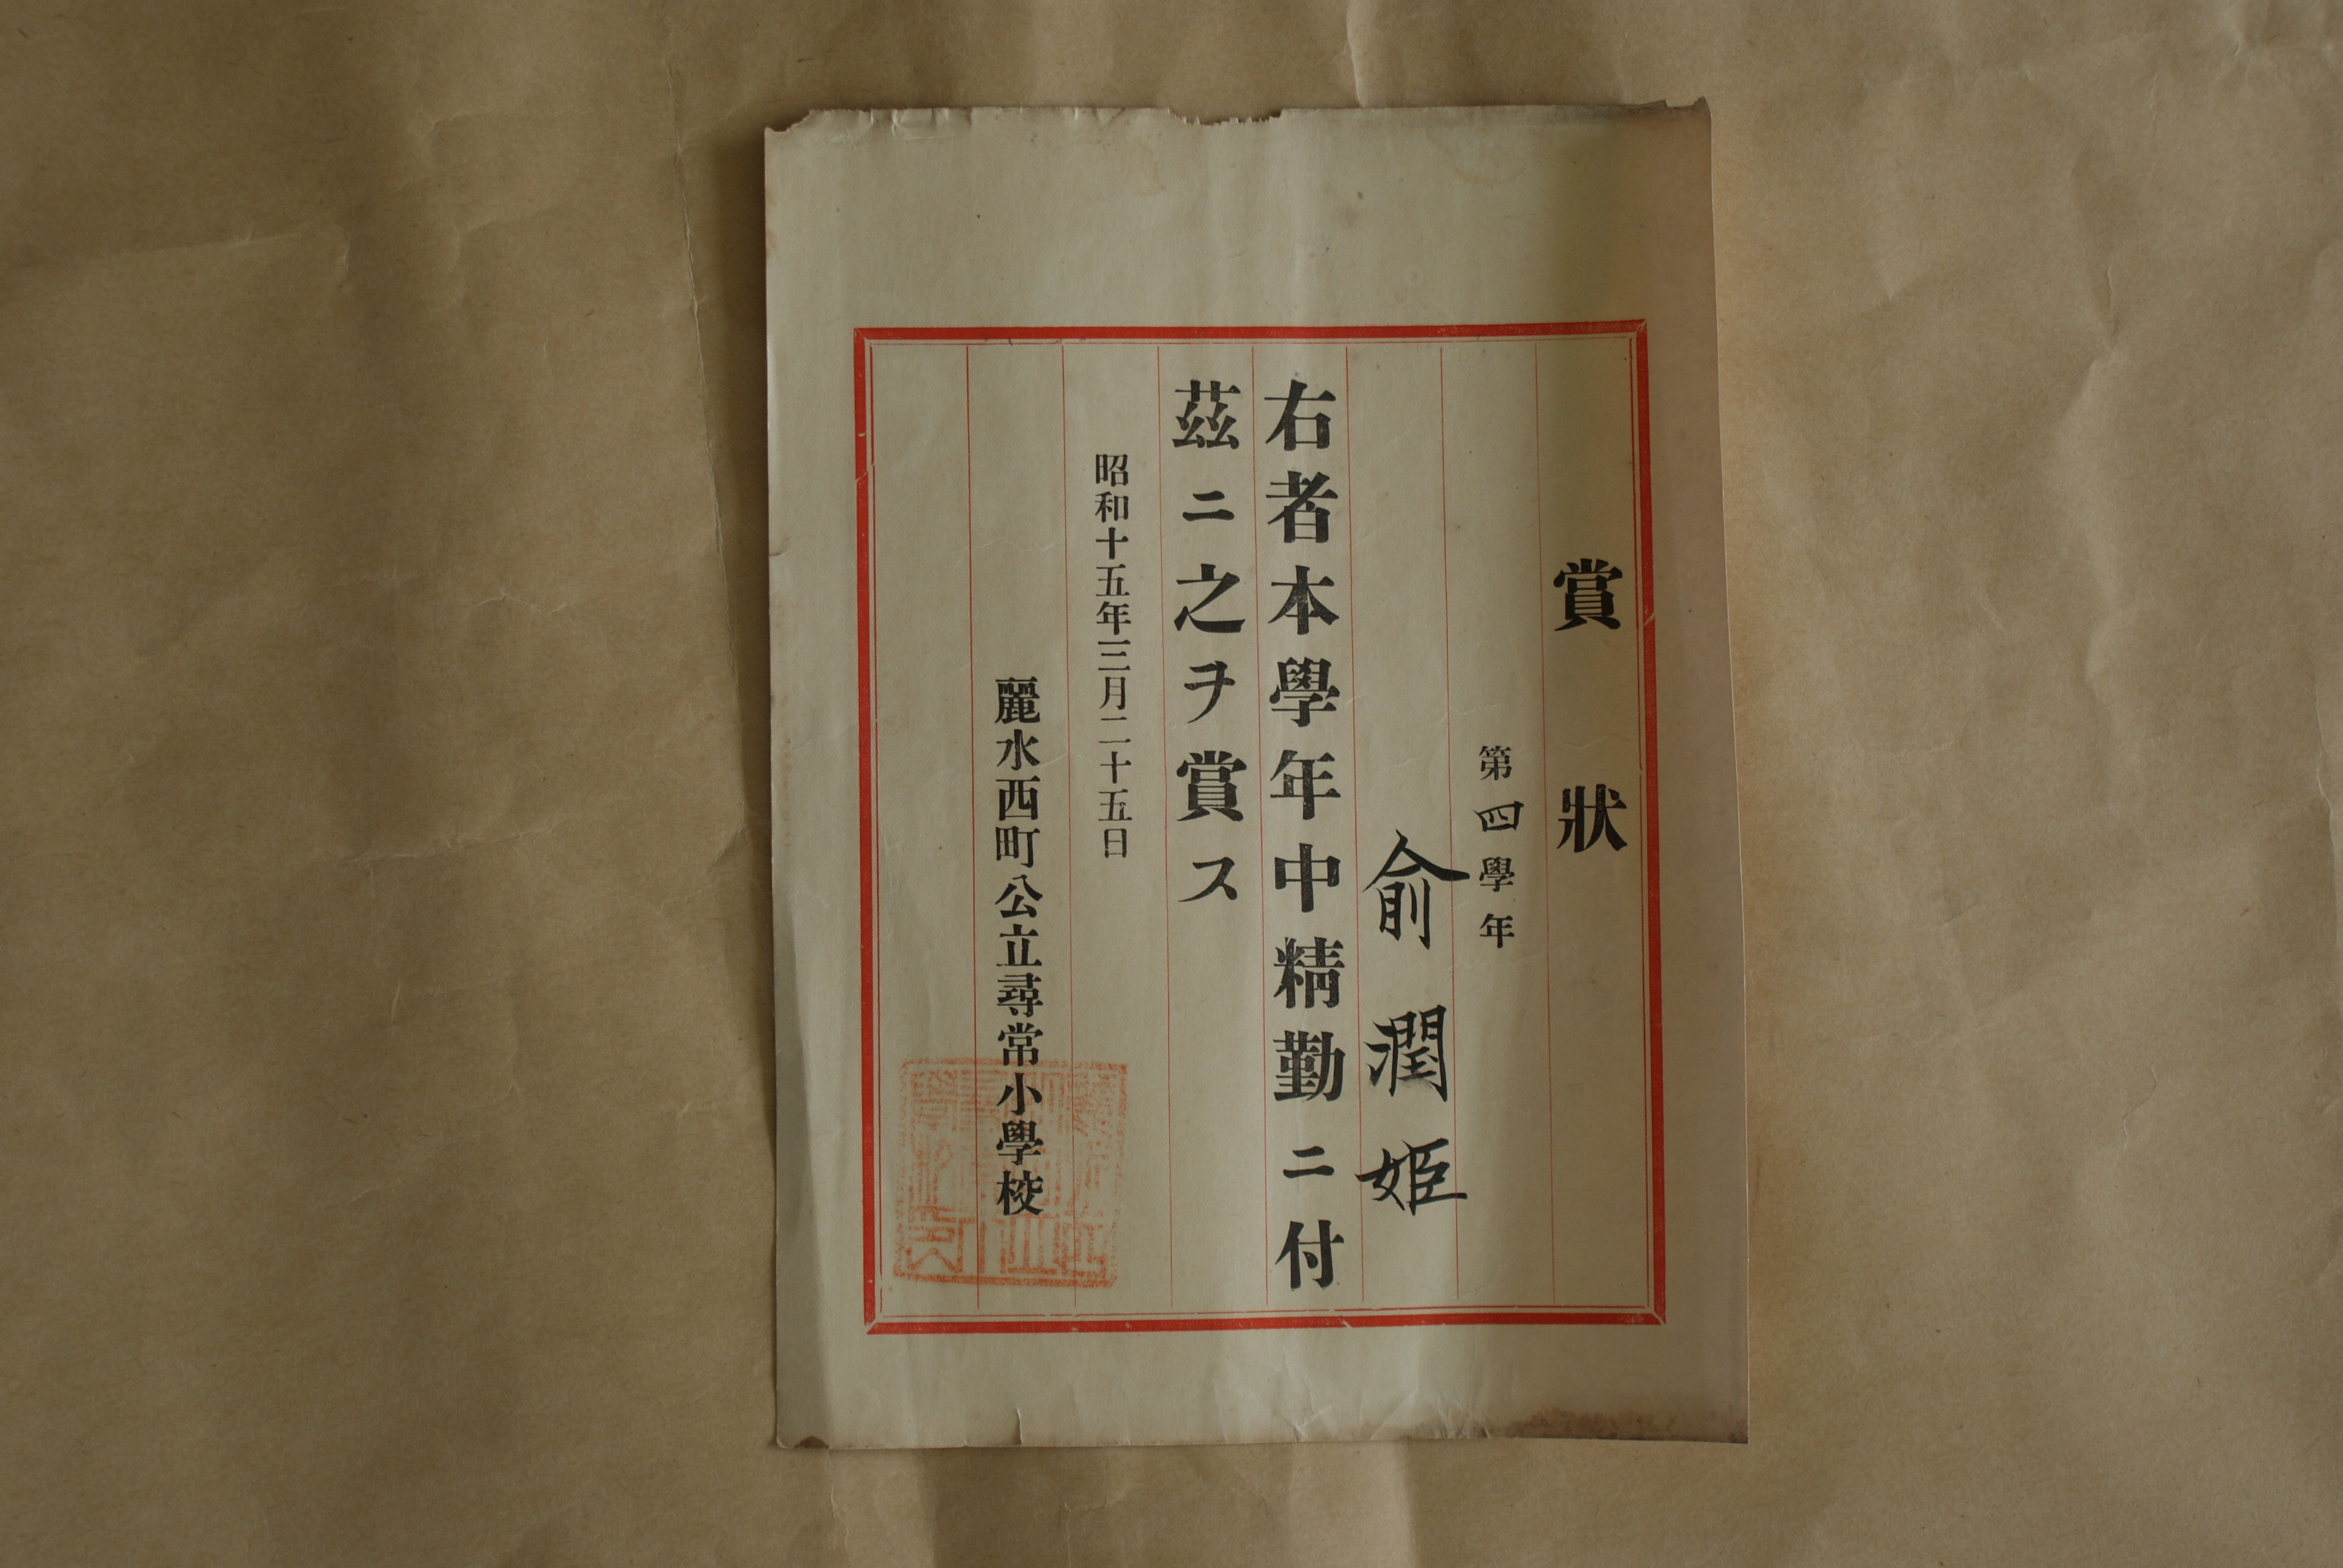 賞狀
第四學年
俞潤姬
右者本學年中精勤ニ付
茲ニ之ヲ賞ス
昭和十五年三月二十五日
麗水西町公立尋常小學校